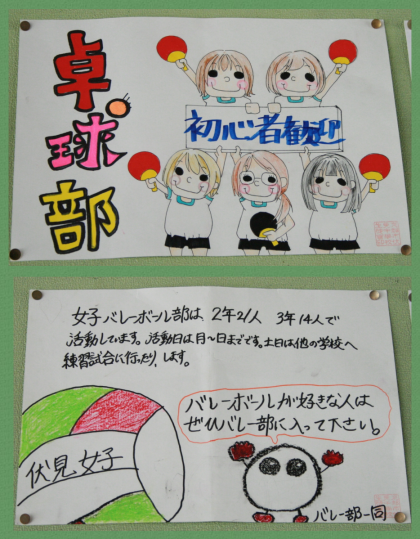 卓球部
初心者歓迎
女子バレーボール部は、2年21人 3年14人で
活動しています。活動日は月～日までです。土日は他の学校へ
練習試合に行ったり、します。
バレーボールが好きな人は
ぜひバレー部に入って下さい。
伏見女子
バレー部一同